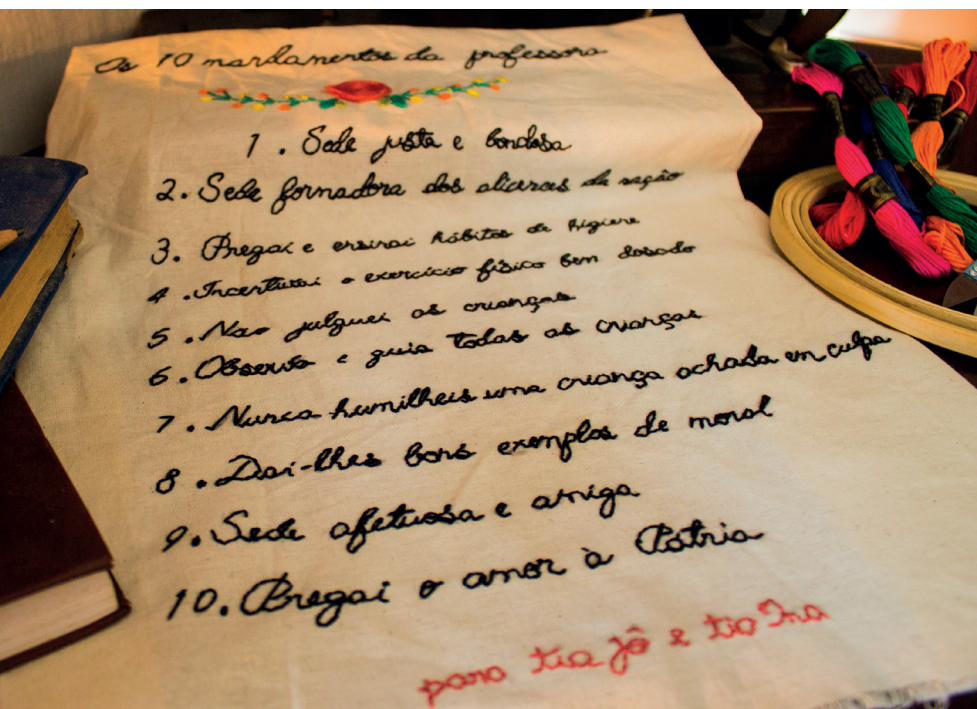 Os 10 mandamentos da professora
1. Sede justa e bondosa
2. Sede formadora dos alicerces da nação
3. Pregai e ensinai hábitos de higiene
4. Incentivai o exercício físico bem dosado
5. Não julguei as crianças
6. Observa e guia todas as crianças
7. Nunca humilheis uma criança achada em culpa
8. Dai-lhes bons exemplos de moral
9. Sede afetuosa e amiga
10. Pregai o amor à Pátria
para tia Jô e tia Ina